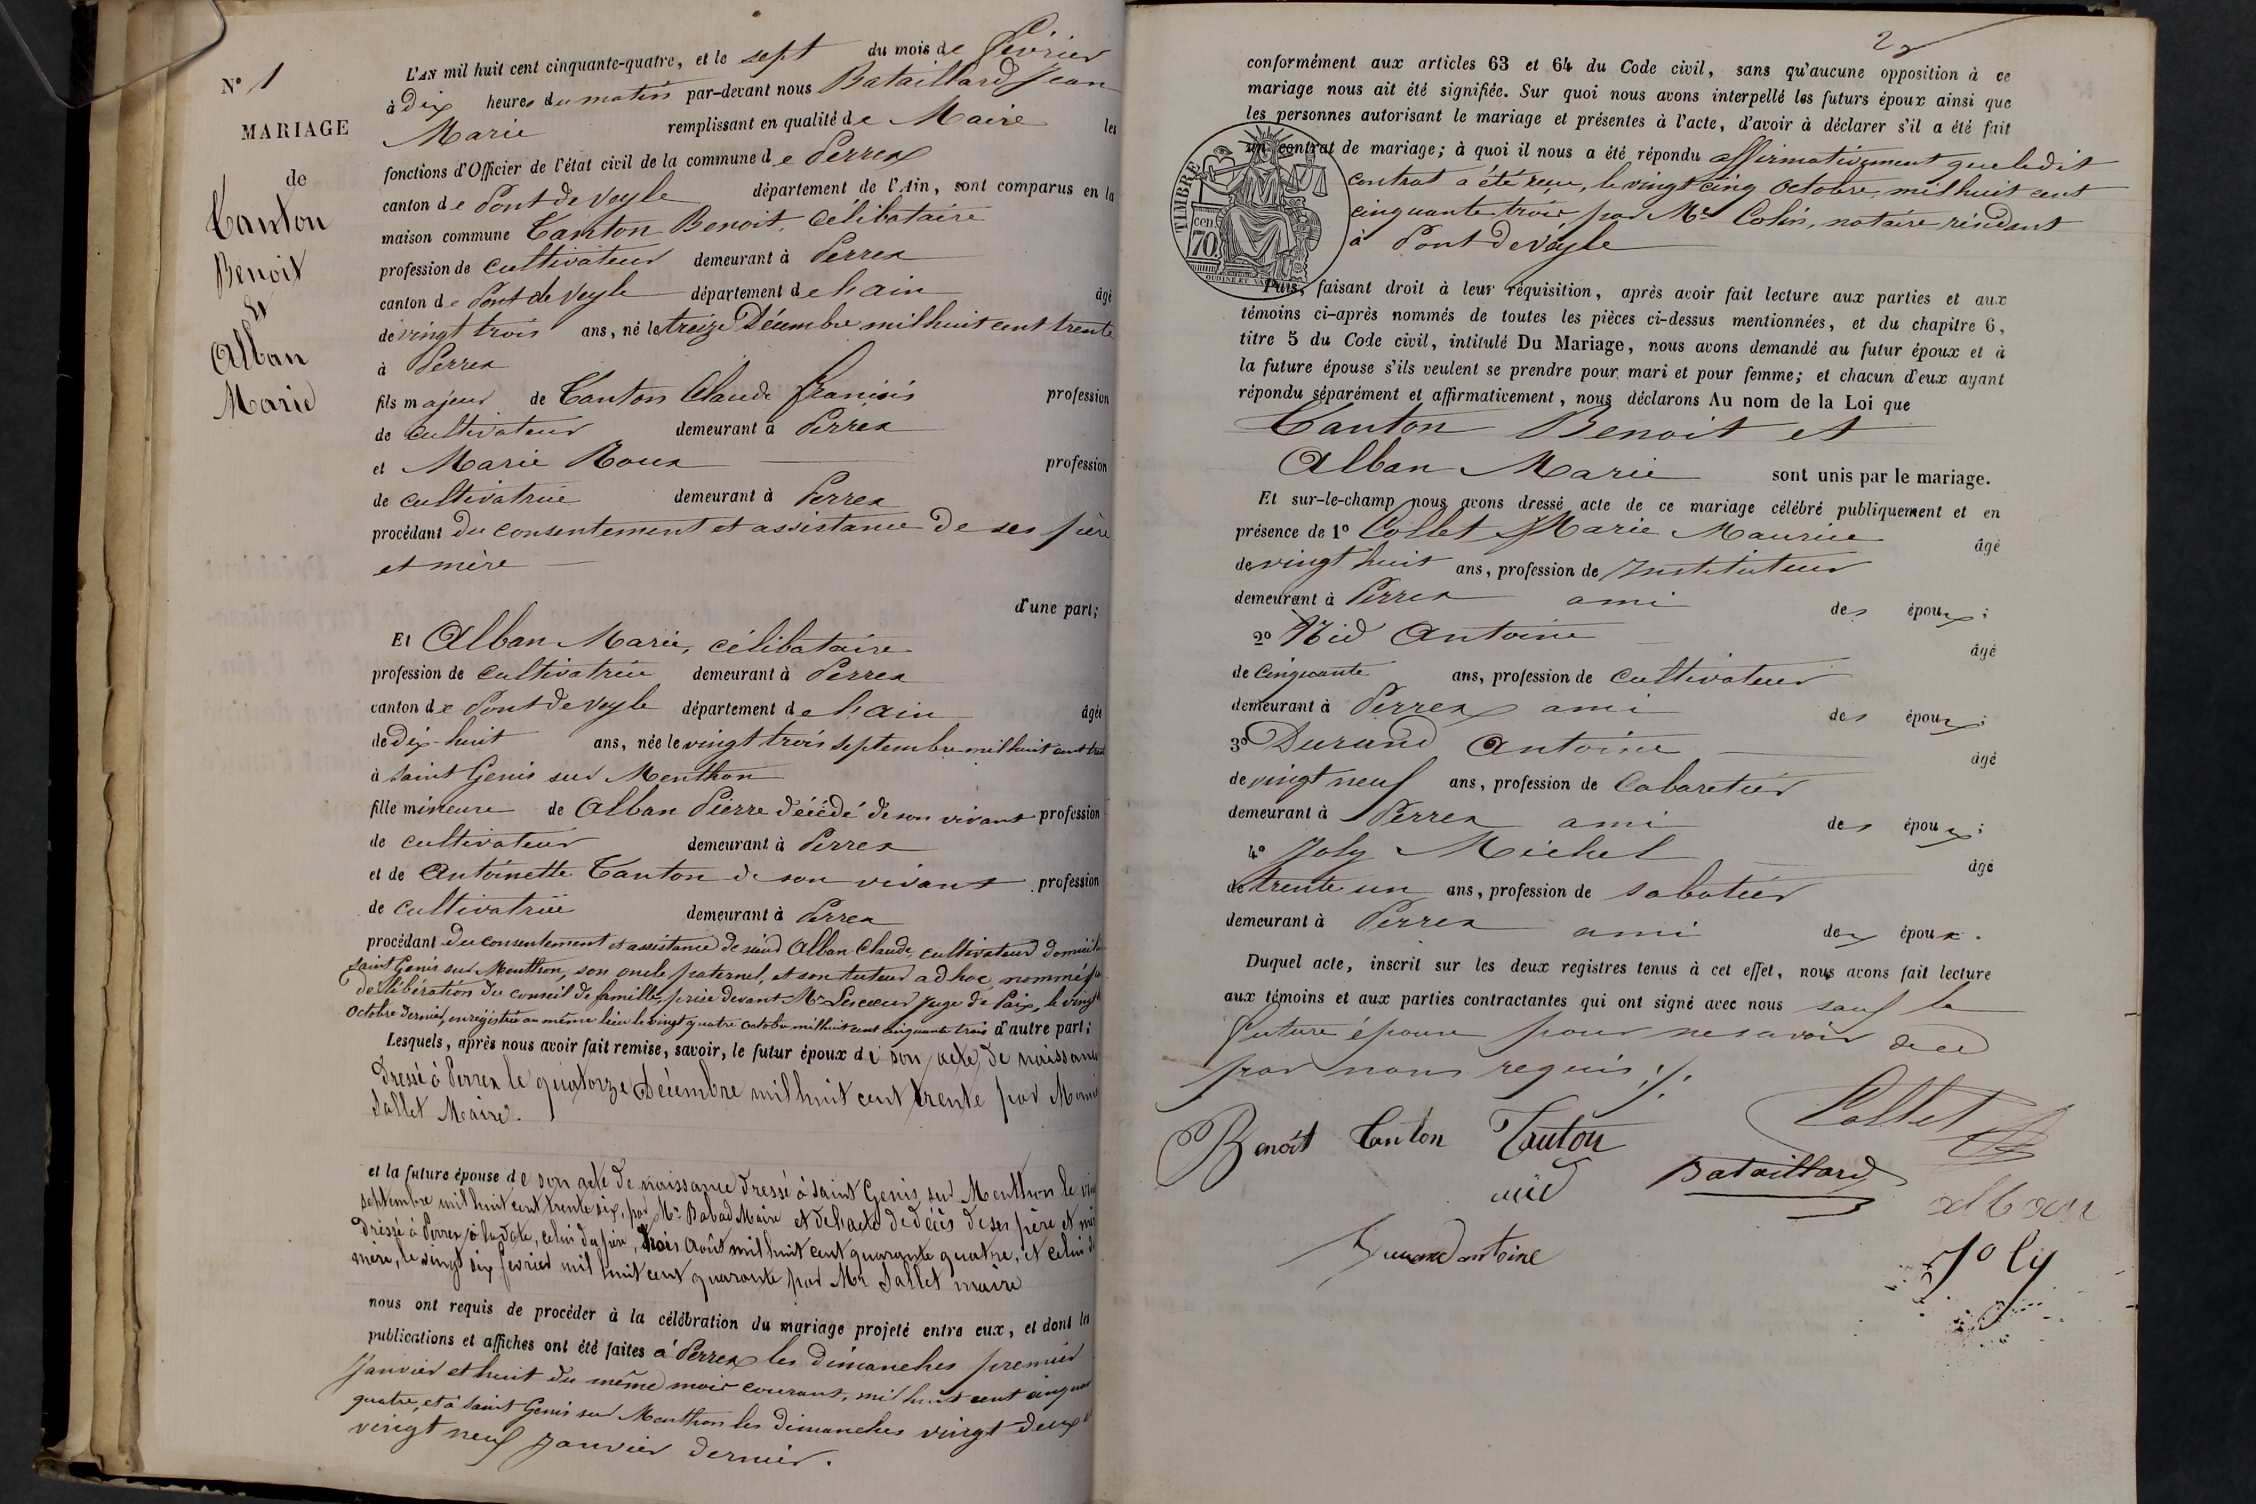 N° 1
MARIAGE
de
Tanton
Benoit
Et
Alban
Marie
L'AN mil huit cent cinquante-quatre, et le sept du mois de février
à Dix heures du matin par-devant nous Bataillard Jean
Marie remplissant en qualité de Maire les
fonctions d'Officier de l'état civil de la commune de Perrex
canton de Pont de Veyle département de l'Ain, sont comparus en la
maison commune Tanton Benoit, célibataire
profession de cultivateur demeurant à Perrex
canton de Pont de Veyle département de l'ain âgé
de vingt trois ans, né le treize Décembre mil huit cent trente
à Perrex
fils majeur de Tanton Claude françois profession
de cultivateur demeurant à Perrex
et Marie Roux profession
de cultivatrice demeurant à Perrex
procédant du consentement et assistance de ses père
et mère
d'une part;
Et Alban Marie, célibataire
profession de cultivatrice demeurant à Perrex
canton de Pont de Veyle département de l'ain âgée
de Dix-huit ans, née le vingt trois septembre mil huit cent
à Saint Genis sur Menthon
fille mineure de Alban Pierre décédé de son vivant profession
de cultivateur demeurant à Perrex
et de Antoinette Tanton de son vivant profession
de cultivatrice demeurant à Perrex
procédant du consentement et assistance de sieur Alban Claude, cultivateur
Saint Genis sur Menthon, son oncle paternel, et son tuteur ad hoc, nommé par
délibération du conseil de famille, prise devant Mr Juge de Paix, le vingt
octobre dernier, enregistrée au même lieu le vingt quatre octobre mil huit cent cinquante trois d'autre part;
Lesquels, après nous avoir fait remise, savoir, le futur époux de son acte de naissance
Dressé à Perrex le quatorze Décembre mil huit cent trente par
Sallet Maire.
et la future épouse de son acte de naissance dressé à Saint Genis sur Menthon le
septembre mil huit cent trente six, par Mr Babad Maire et de l'acte de décès de ses père et
dressé à Perrex à la date, celui du père, trois Août mil huit cent quarante quatre, et celui de
mère, le vingt six février mil huit cent quarante par Mr Sallet maire
nous ont requis de procéder à la célébration du mariage projeté entre eux, et dont les
publications et affiches ont été faites à Perrex les dimanches premier
Janvier et huit du même mois courant, mil huit cent
quatre, et à Saint Genis sur Menthon les dimanches vingt-deux et
vingt neuf Janvier dernier.
2
conformément aux articles 63 et 64 du Code civil, sans qu'aucune opposition à ce
mariage nous ait été signifiée. Sur quoi nous avons interpellé les futurs époux ainsi que
les personnes autorisant le mariage et présentes à l'acte, d'avoir à déclarer s'il a été fait
un contrat de mariage; à quoi il nous a été répondu affirmativement que ledit
contrat a été reçu, le vingt cinq octobre mil huit cent
cinquante trois par Me Colin, notaire résidant
à Pont de Veyle
TIMBRE
70 cen
Puis, faisant droit à leur réquisition, après avoir fait lecture aux parties et aux
témoins ci-après nommés de toutes les pièces ci-dessus mentionnées, et du chapitre 6,
titre 5 du Code civil, intitulé Du Mariage, nous avons demandé au futur époux et à
la future épouse s'ils veulent se prendre pour mari et pour femme; et chacun d'eux ayant
répondu séparément et affirmativement, nous déclarons Au nom de la Loi que
Tanton Benoit et
Alban Marie sont unis par le mariage.
Et sur-le-champ nous avons dressé acte de ce mariage célébré publiquement et en
présence de 1° Collet Marie Maurice âgé
de vingt huit ans, profession de Instituteur
demeurant à Perrex ami des époux;
2° Nid Antoine âgé
de Cinquante ans, profession de cultivateur
demeurant à Perrex ami des époux;
3° Durand Antoine âgé
de vingt neuf ans, profession de Cabaretier
demeurant à Perrex ami des époux;
4° Joly Michel âgé
de trente un ans, profession de sabotier
demeurant à Perrex ami des époux.
Duquel acte, inscrit sur les deux registres tenus à cet effet, nous avons fait lecture
aux témoins et aux parties contractantes qui ont signé avec nous sauf la
future épouse pour ne savoir de ce
par nous requis ./.
Benoit Tanton Tanton Collet
nid Bataillard alban
Durand antoine Joly